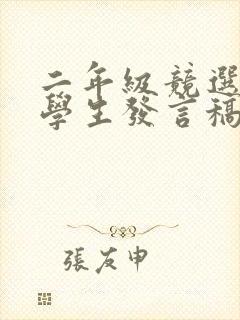 二年級競選
學生發言稿
張友申